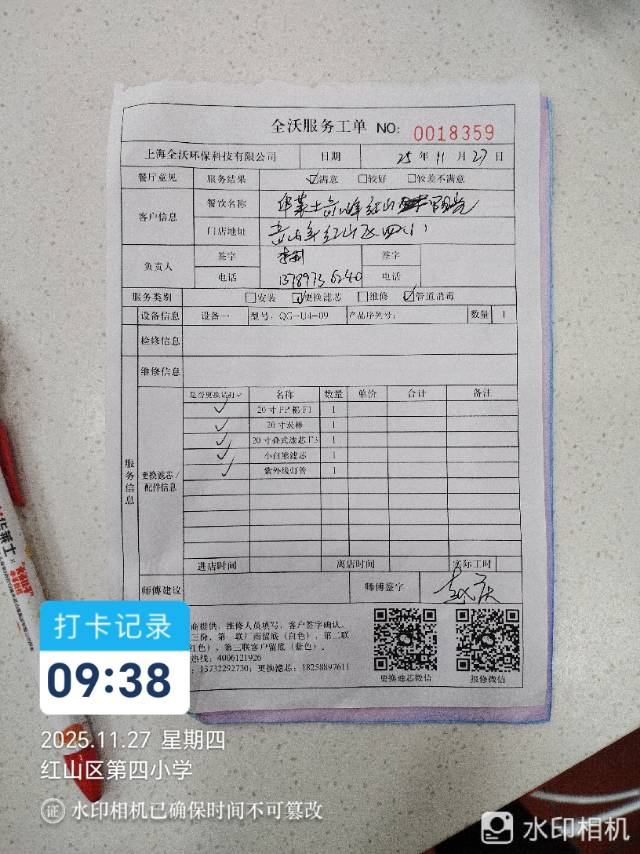 全沃服务工单 NO: 0018359
上海全沃环保科技有限公司 日期 25 年 11 月 27 日
餐厅意见 服务结果 ☑满意 □较好 □较差不满意
客户信息 餐饮名称 华莱士赤峰红山
门店地址 赤峰红山区四小
负责人 签字 签字
电话 电话
服务类别 □安装 ☑更换滤芯 □维修 ☑管道消毒
设备信息 设备一 型号: QG-U4-09 产品序列号: 数量 1
检修信息
维修信息
服务信息
更换滤芯/配件信息
是否更换请打✓ 名称 数量 单价 合计 备注
✓ 20寸PP棉F1 1
✓ 20寸炭棒 1
✓ 20寸叠式滤芯F3 1
✓ 小白狼滤芯 1
✓ 紫外线灯管 1
进店时间 离店时间 实际工时
师傅建议 师傅签字
商提供, 维修人员填写, 客户签字确认。
三份, 第一联厂商留底(白色), 第二联
红色), 第三联客户留底(蓝色)。
热线: 4006121926
: 13732292730; 更换滤芯: 18258897611
更换滤芯微信 报修微信
华莱士
打卡记录
09:38
2025.11.27 星期四
红山区第四小学
证 水印相机已确保时间不可篡改
水印相机